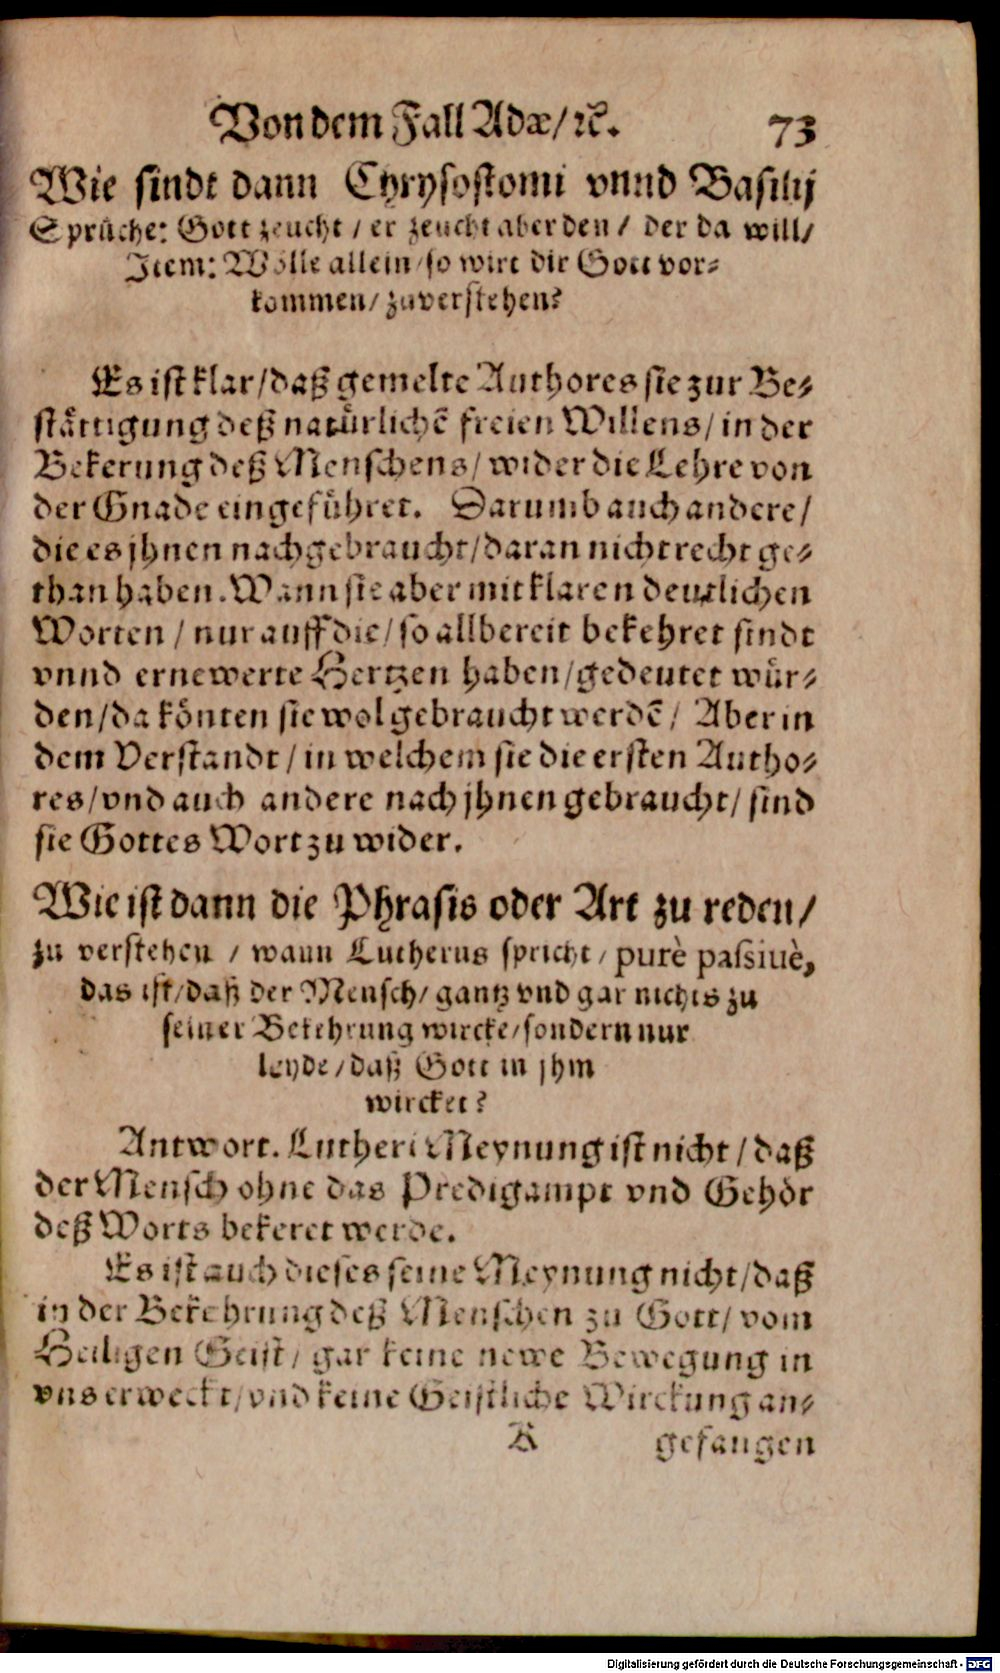 Von dem Fall Adæ/ꝛc̃. 73
Wie sindt dann Chrysostomi vnnd Basilij
Sprüche: Gott zeucht / er zeucht aber den / der da will/
Item: Wölle allein / so wirt dir Gott vor⸗
kommen/ zuverstehen?
Es ist klar/daß gemelte Authores sie zur Be⸗
stättigung deß natürlichẽ freien Willens/ in der
Bekerung deß Menschens/ wider die Lehre von
der Gnade eingeführet. Darumb auch andere/
die es jhnen nachgebraucht/daran nicht recht ge⸗
than haben. Wann sie aber mit klaren deutlichen
Worten / nur auff die/ so allbereit bekehret sindt
vnnd ernewerte Hertzen haben/gedeutet wür⸗
den/da könten sie wol gebraucht werdẽ/ Aber in
dem Verstandt/ in welchem sie die ersten Autho⸗
res/vnd auch andere nach jhnen gebraucht/ sind
sie Gottes Wort zu wider.
Wie ist dann die Phrasis oder Art zu reden/
zu verstehen / wann Lutherus spricht/ purè passiuè,
das ist/daß der Mensch/ gantz vnd gar nichts zu
seiner Bekehrung wircke/sondern nur
leyde/daß Gott in jhm
wircket?
Antwort. Lutheri Meynung ist nicht/ daß
der Mensch ohne das Predigampt vnd Gehör
deß Worts bekeret werde.
Es ist auch dieses seine Meynung nicht/daß
in der Bekehrung deß Menschen zu Gott/ vom
Heiligen Geist/ gar keine newe Bewegung in
vns erweckt/vnd keine Geistliche Wirckung an⸗
K gefangen
Digitalisierung gefördert durch die Deutsche Forschungsgemeinschaft - DFG